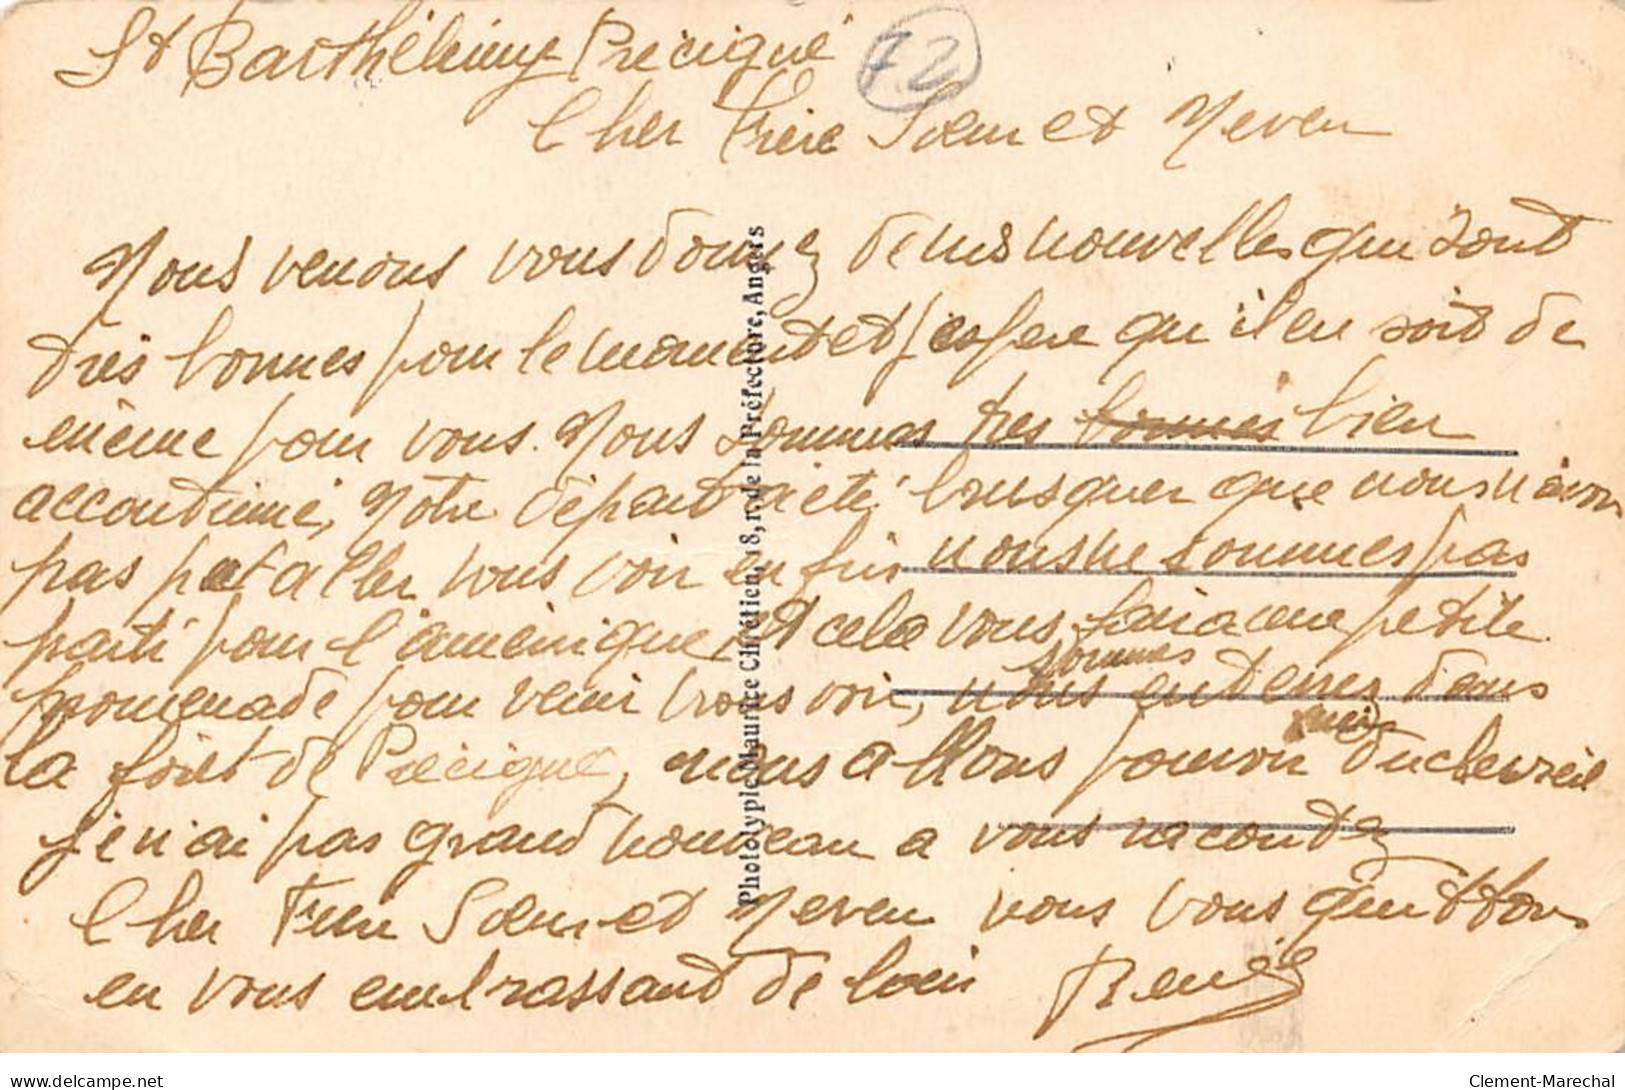 St Barthélémy Précigné
72
Cher Frère Sœur et Neveu
Nous venons vous donnez de nos nouvelles qui sont
très bonnes pour le moment et j'espere qu'il en soit de
même pour vous. Nous sommes tres bonnes bien
accoutumé, Notre départ a été brusquer que nous n'avon
pas put aller vous voir enfin nous ne sommes pas
parti pour l'amérique, et cela vous faira une petite
promenade pour venir vous voir, nous sommes en dans
la forêt de Précigné, nous allons pouvoir du chevreil
je n'ai pas grand nouveau a vous racontez
Cher Frere Sœur et Neveu nous vous quittons
en vous embrassant de loin René
Phototypie Maurice Chrétien, 18, r. de la Préfecture, Angers
Clement-Marechal
delcampe.net